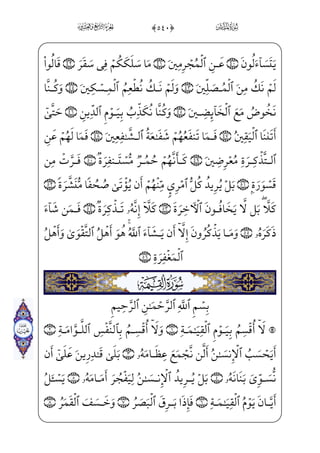 ﴿٥٤٠﴾
يَتَسَآءَلُونَ ٤٠ عَنِ ٱلْمُجْرِمِينَ ٤١ مَا سَلَكَكُمْ فِى سَقَرَ ٤٢ قَالُوا۟
لَمْ نَكُ مِنَ ٱلْمُصَلِّينَ ٤٣ وَلَمْ نَكُ نُطْعِمُ ٱلْمِسْكِينَ ٤٤ وَكُنَّا
نَخُوضُ مَعَ ٱلْخَآئِضِينَ ٤٥ وَكُنَّا نُكَذِّبُ بِيَوْمِ ٱلدِّينِ ٤٦ حَتَّىٰٓ
أَتَىٰنَا ٱلْيَقِينُ ٤٧ فَمَا تَنفَعُهُمْ شَفَٰعَةُ ٱلشَّٰفِعِينَ ٤٨ فَمَا لَهُمْ عَنِ
ٱلتَّذْكِرَةِ مُعْرِضِينَ ٤٩ كَأَنَّهُمْ حُمُرٌ مُّسْتَنفِرَةٌ ٥٠ فَرَّتْ مِن
قَسْوَرَةٍۭ ٥١ بَلْ يُرِيدُ كُلُّ ٱمْرِئٍ مِّنْهُمْ أَن يُؤْتَىٰ صُحُفًا مُّنَشَّرَةً ٥٢
كَلَّا ۖ بَل لَّا يَخَافُونَ ٱلْءَاخِرَةَ ٥٣ كَلَّآ إِنَّهُۥ تَذْكِرَةٌ ٥٤ فَمَن شَآءَ
ذَكَرَهُۥ ٥٥ وَمَا يَذْكُرُونَ إِلَّآ أَن يَشَآءَ ٱللَّهُ ۚ هُوَ أَهْلُ ٱلتَّقْوَىٰ وَأَهْلُ
ٱلْمَغْفِرَةِ ٥٦
سُورَةُ القِيَامَةِ
بِسْمِ ٱللَّهِ ٱلرَّحْمَٰنِ ٱلرَّحِيمِ
لَآ أُقْسِمُ بِيَوْمِ ٱلْقِيَٰمَةِ ١ وَلَآ أُقْسِمُ بِٱلنَّفْسِ ٱللَّوَّامَةِ ٢
أَيَحْسَبُ ٱلْإِنسَٰنُ أَلَّن نَّجْمَعَ عِظَامَهُۥ ٣ بَلَىٰ قَٰدِرِينَ عَلَىٰٓ أَن
نُّسَوِّىَ بَنَانَهُۥ ٤ بَلْ يُرِيدُ ٱلْإِنسَٰنُ لِيَفْجُرَ أَمَامَهُۥ ٥ يَسْـَٔلُ
أَيَّانَ يَوْمُ ٱلْقِيَٰمَةِ ٦ فَإِذَا بَرِقَ ٱلْبَصَرُ ٧ وَخَسَفَ ٱلْقَمَرُ ٨